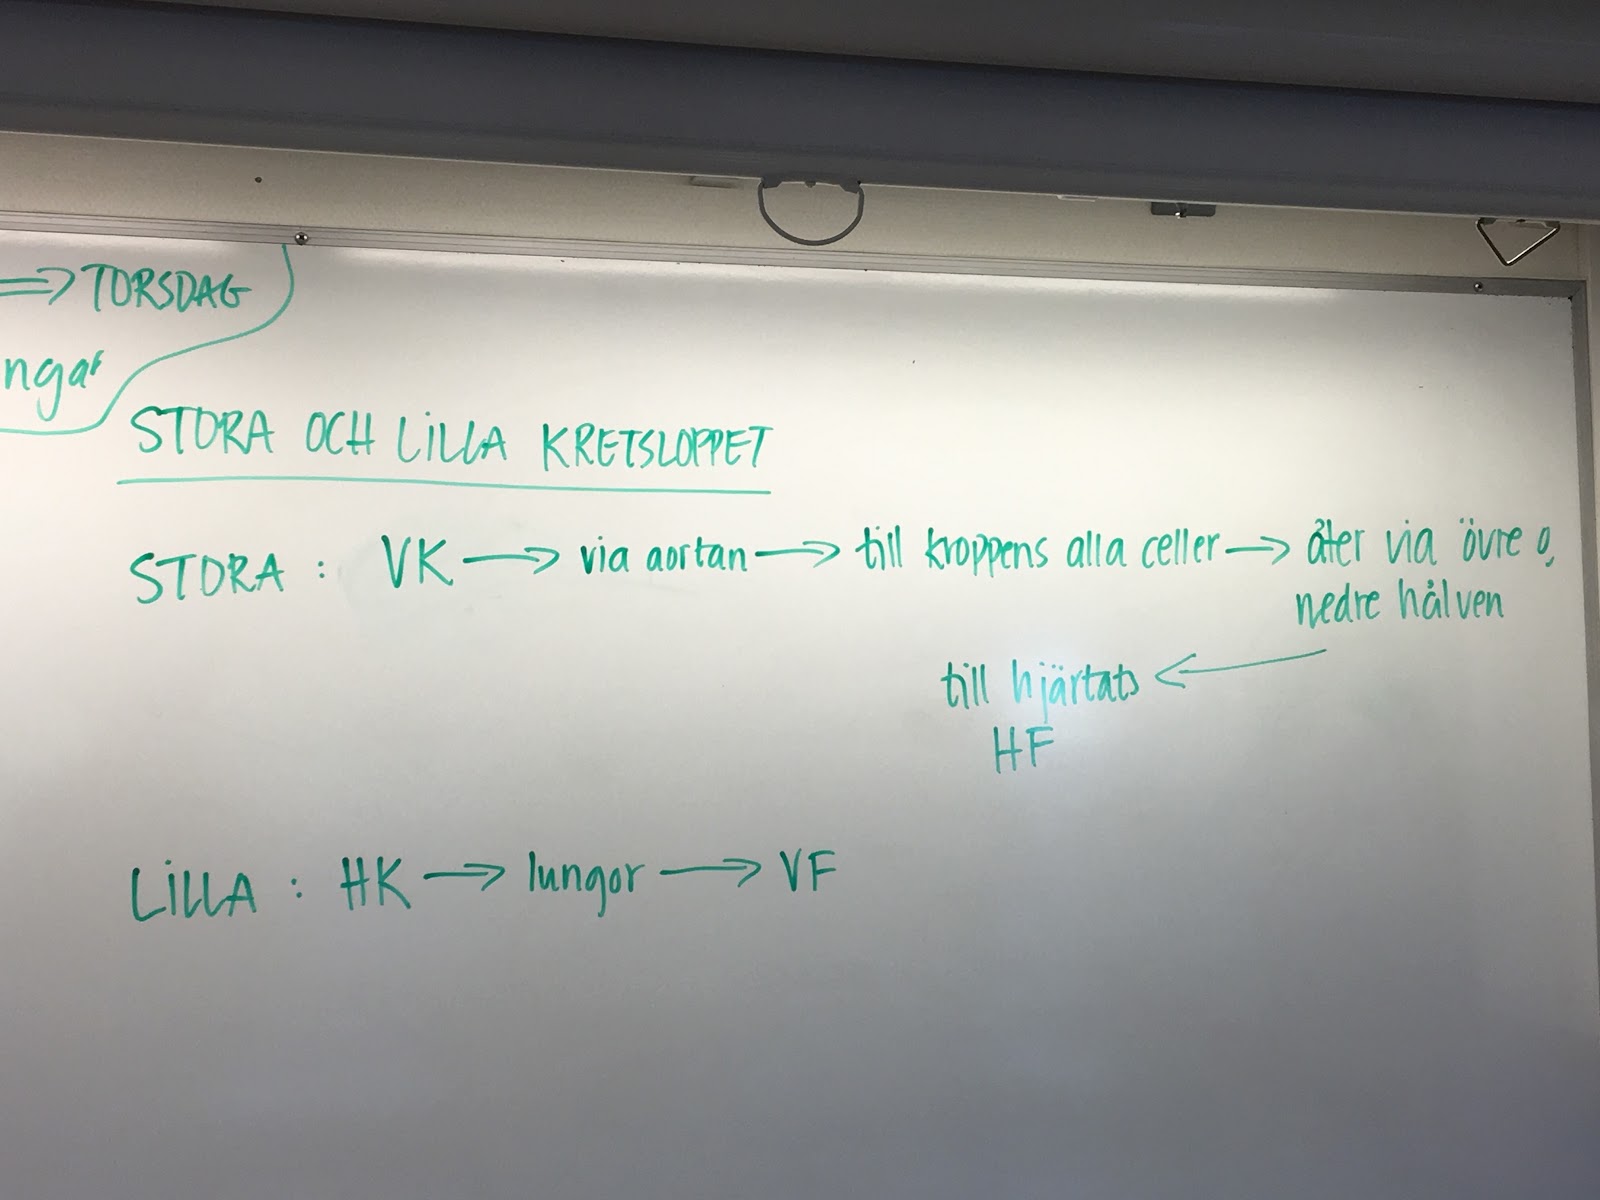 => TORSDAG
ngar
STORA OCH LILLA KRETSLOPPET
STORA : VK → via aortan → till kroppens alla celler → åter via övre o,
nedre hålven
till hjärtats ←
HF
LILLA : HK → lungor → VF